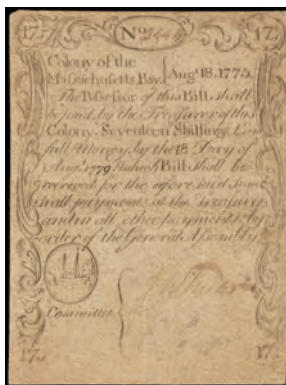 17s No 17s
Colony of the
Massachusetts Bay. { Augt 18. 1775.
The Possessor of this Bill shall
be paid, by the Treasurer of this
Colony, Seventeen Shillings Law
full Money, by the 18 Day of
Augt 1779 which Bill shall be
received for the aforesaid Sum
in all payments at the Treasury
and in all other payments by
order of the General Assembly.
Committee {
17s 17s